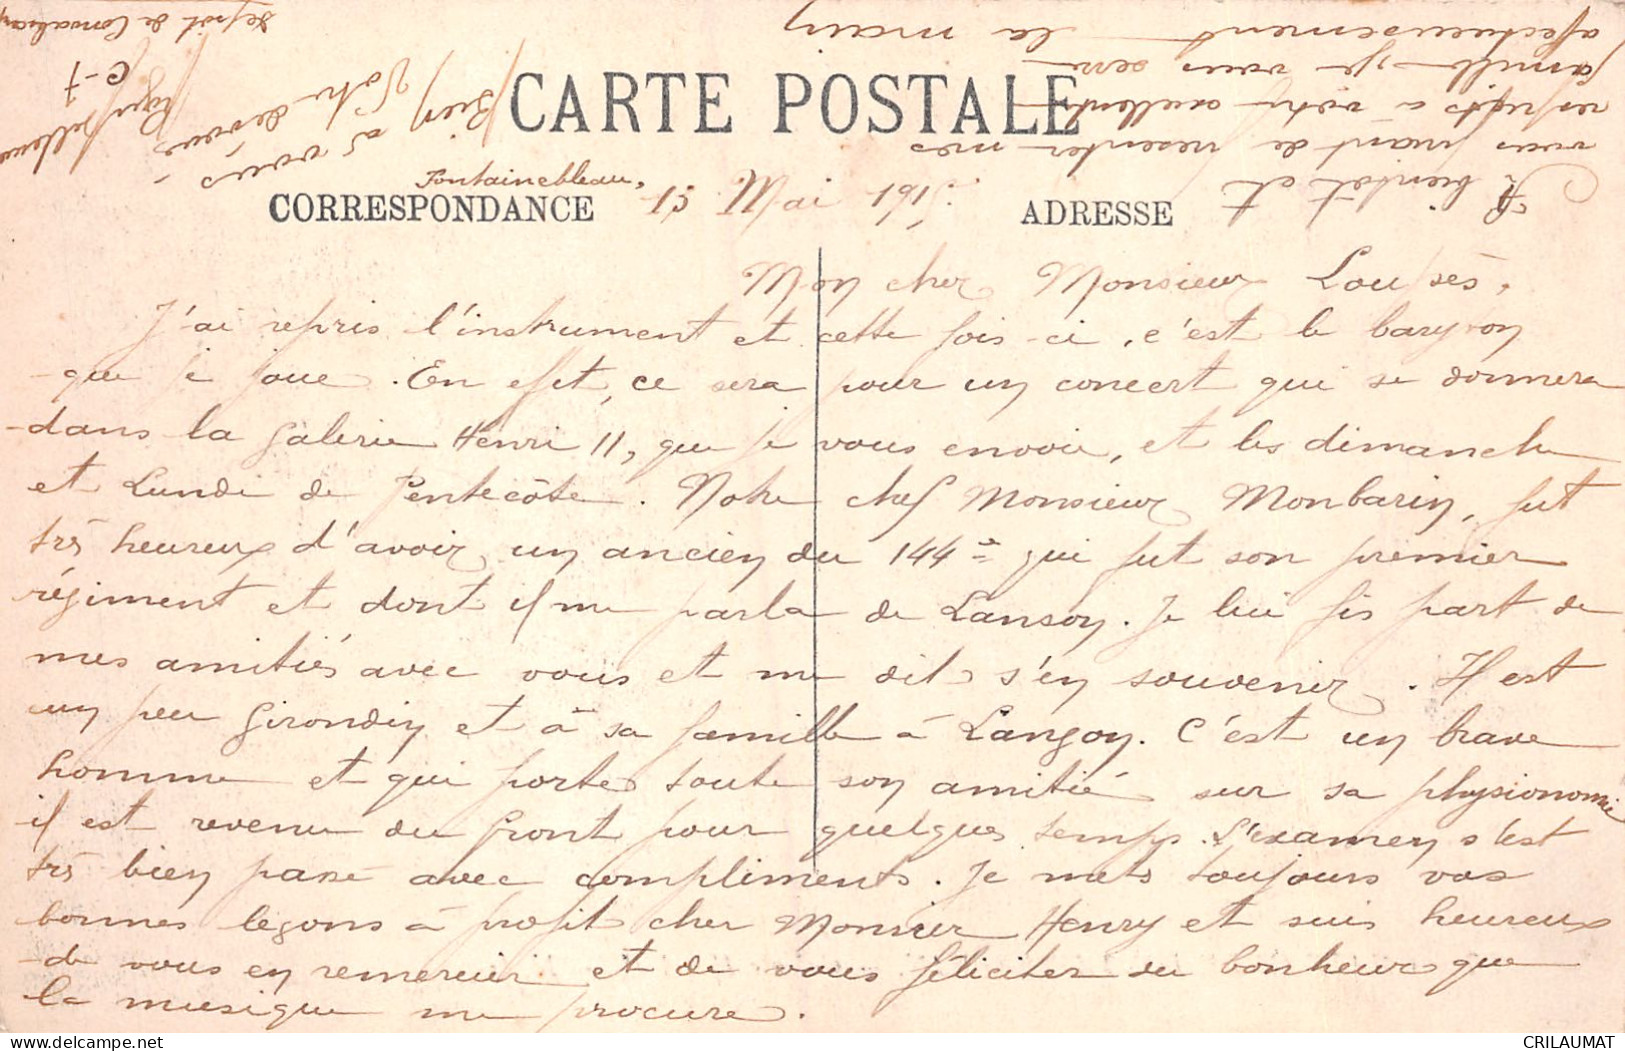 CARTE POSTALE
CORRESPONDANCE
ADRESSE
Fontainebleau, 15 Mai 1915.
Mon cher Monsieur
J'ai repris l'instrument et cette fois-ci, c'est le baryton
que je joue. En effet, ce sera pour un concert qui se donnera
dans la galerie Henri II, que je vous envoie, et les dimanche
et Lundi de Pentecôte. Notre chef Monsieur Monbarin, fut
très heureux d'avoir un ancien du 144e qui fut son premier
régiment et dont il me parla de . Je lui fis part de
mes amitiés avec vous et me dit s'en souvenir. Il est
un peu Girondin et à sa famille à Langon. C'est un brave
homme et qui porte toute son amitié sur sa physionomie
il est revenu du front pour quelques temps. L'examen s'est
très bien passé avec compliments. Je mets toujours vos
bonnes leçons à profit cher Monsieur Henry et suis heureux
de vous en remercier et de vous féliciter du bonheur que
la musique me procure.
A bientôt et
vous priant de présenter mes
respects à votre excellente
famille, je vous serre
affectueusement la main
Bien à vous,
Votre dévoué
Dépôt de
CRILAUMAT